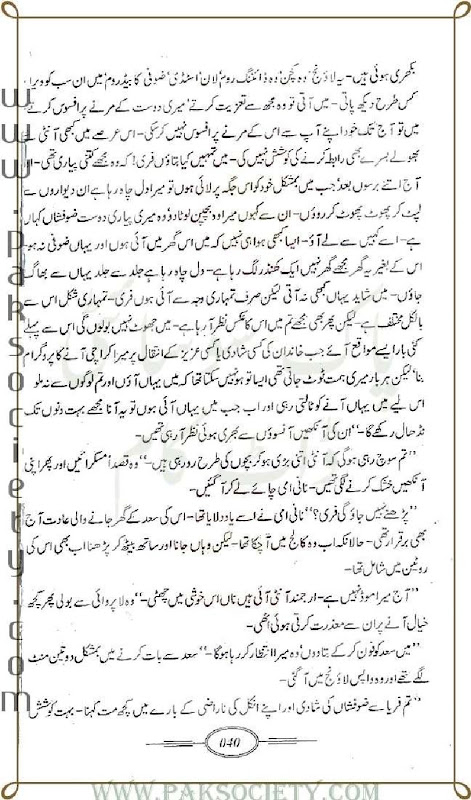 بکھری ہوئی ہیں۔ یہ لاؤنج‘ وہ کچن‘ وہ ڈائننگ روم‘ لان‘ اسٹڈی‘ ضوفی کا بیڈ روم میں ان سب کو ویران
کس طرح دیکھ پاتی۔ میں آتی تو وہ مجھ سے تعزیت کرتے‘ میری دوست کے مرنے پر افسوس کرتے
میں تو آج تک خود اپنے آپ سے اس کے مرنے پر افسوس نہیں کر سکی۔ اس عرصے میں کبھی آنٹی نے
بھولے بسرے بھی رابطہ کرنے کی کوشش نہیں کی۔ میں تمہیں کیا بتاؤں فری! کہ وہ مجھے کتنی پیاری تھی۔
آج اتنے برسوں بعد‘ جب میں بمشکل خود کو اس جگہ پر لائی ہوں تو میرا دل چاہ رہا ہے ان دیواروں سے
لپٹ کر پھوٹ پھوٹ کر روؤں۔ ان سے کہوں میرا وہ بچپن لوٹا دو‘ وہ میری پیاری دوست ضوفشاں کہاں
ہے۔ اسے کہیں سے لے آؤ۔ ایسا کبھی ہوا ہی نہیں کہ میں اس گھر میں آئی ہوں اور یہاں ضوفی نہ ہو
اس کے بغیر یہ گھر مجھے گھر نہیں ایک کھنڈر لگ رہا ہے۔ دل چاہ رہا ہے جلد سے جلد یہاں سے بھاگ
جاؤں۔ میں شاید یہاں کبھی نہ آتی لیکن صرف تمہاری وجہ سے آئی ہوں فری۔ تمہاری شکل اس سے
بالکل مختلف ہے۔ لیکن پھر بھی مجھے تم میں اس کا عکس نظر آ رہا ہے۔ میں جھوٹ نہیں بولوں گی اس سے پہلے
کئی بار ایسے مواقع آئے جب خاندان کی کسی شادی یا کسی عزیز کے انتقال پر میرا کراچی آنے کا پروگرام
بنا‘ لیکن ہر بار میری ہمت ٹوٹ جاتی تھی ایسا تو ہو نہیں سکتا تھا کہ میں یہاں آؤں اور تم لوگوں سے نہ ملوں
اس لیے میں یہاں آنے کو ٹالتی رہی اور اب جب میں یہاں آئی ہوں تو یہ آنا مجھے بہت دنوں تک
نڈھال رکھے گا۔‘‘ ان کی آنکھیں آنسوؤں سے بھری ہوئی نظر آ رہی تھیں۔
’’تم سوچ رہی ہو گی کہ آنٹی اتنی بڑی ہو کر بچوں کی طرح رو رہی ہیں۔‘‘ وہ قصداً مسکرائیں اور پھر اپنی
آنکھیں خشک کرنے لگی تھیں۔ نانی امی چائے لے کر آ گئیں۔
’’پڑھنے نہیں جاؤ گی فری؟‘‘ نانی امی نے اسے یاد دلایا تھا۔ اس کی سعد کے گھر جانے والی عادت آج
بھی برقرار تھی۔ حالانکہ اب وہ کالج میں آ چکا تھا۔ لیکن وہاں جانا اور ساتھ بیٹھ کر پڑھنا اب بھی اس کی
روٹین میں شامل تھا۔
’’آج میرا موڈ نہیں ہے۔ ارجمند آنٹی آئی ہیں ناں اس خوشی میں چھٹی۔‘‘ وہ لا پروائی سے بولی پھر کچھ
خیال آنے پر ان سے معذرت کرتی ہوئی اٹھی۔
’’میں سعد کو فون کر کے بتا دوں‘ وہ میرا انتظار کر رہا ہو گا۔‘‘ سعد سے بات کرنے میں بمشکل دو تین منٹ
لگے تھے اور وہ واپس لاؤنج میں آ گئی۔
’’تم فریا سے ضوفشاں کی شادی اور اپنے انکل کی ناراضی کے بارے میں کچھ مت کہنا۔ بہت کوشش
040
www.paksociety.com
WWW.PAKSOCIETY.COM